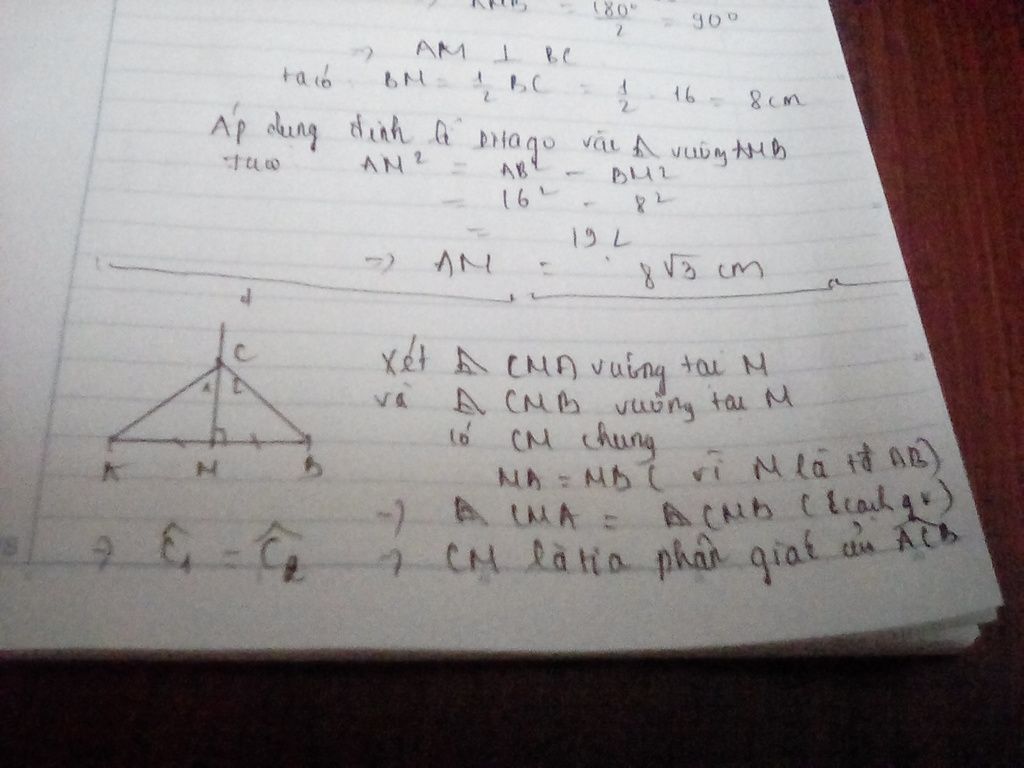 => AMB = 180°/2 = 90°
=> AM ⊥ BC
ta có BM = 1/2 BC = 1/2 . 16 = 8cm
Áp dụng định lí pitago vào Δ vuông AMB
ta có AM² = AB² - BM²
= 16² - 8²
= 192
=> AM = 8√3 cm
d
C
1 2
A M B
Xét Δ CMA vuông tại M
và Δ CMB vuông tại M
có CM chung
MA = MB ( vì M là tđ AB)
=> Δ CMA = Δ CMB (2 cạnh gv)
=> Ĉ1 = Ĉ2 => CM là tia phân giác của ACB